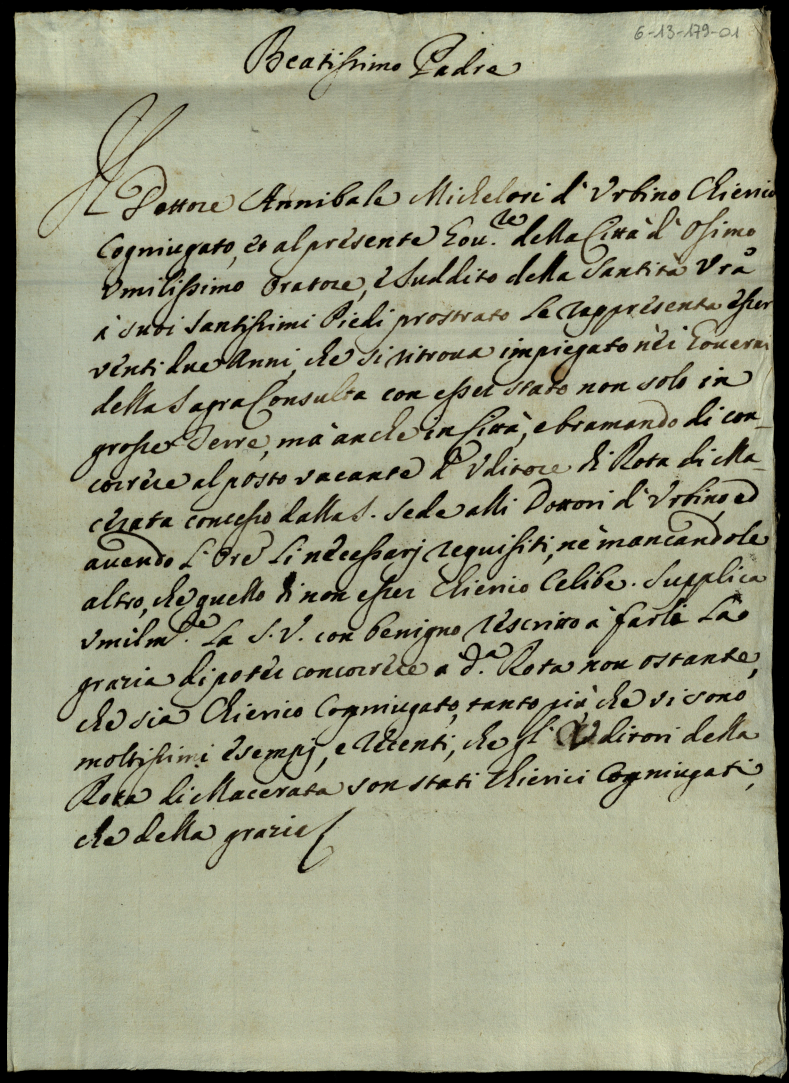 6-13-179-01
Beatissimo Padre
Il Dottore Annibale Michelori d'Urbino Chierico
Cogniugato, et al presente Gou.re della Città d'Osimo
Vmilissimo Oratore, e Suddito della Santità Vrã
à suoi Santissimi Piedi prostrato Le rappresenta esser
venti due Anni, che si ritroua impiegato nèi Gouerni
della Sagra Consulta con esser stato non solo in
grosse Terre, mà anche in Città, e bramando di con-
correre al posto vacante d'Vditore di Rota di Ma-
cerata concesso dalla S. Sede alli Dottori d'Vrbino, ed
auendo L'Ore Li necessarj requisiti, nè mancandole
altro, che quello di non esser Chierico Celibe. Supplica
vmilm.te La S. V. con benigno rescritto à farle La
grazia di poter concorrere a d.a Rota non ostante,
che sia Chierico Cogniugato, tanto più che vi sono
moltissimi esempj, e recenti, che gl'Vditori della
Rota di Macerata son stati Chierici Cogniugati,
che della grazia